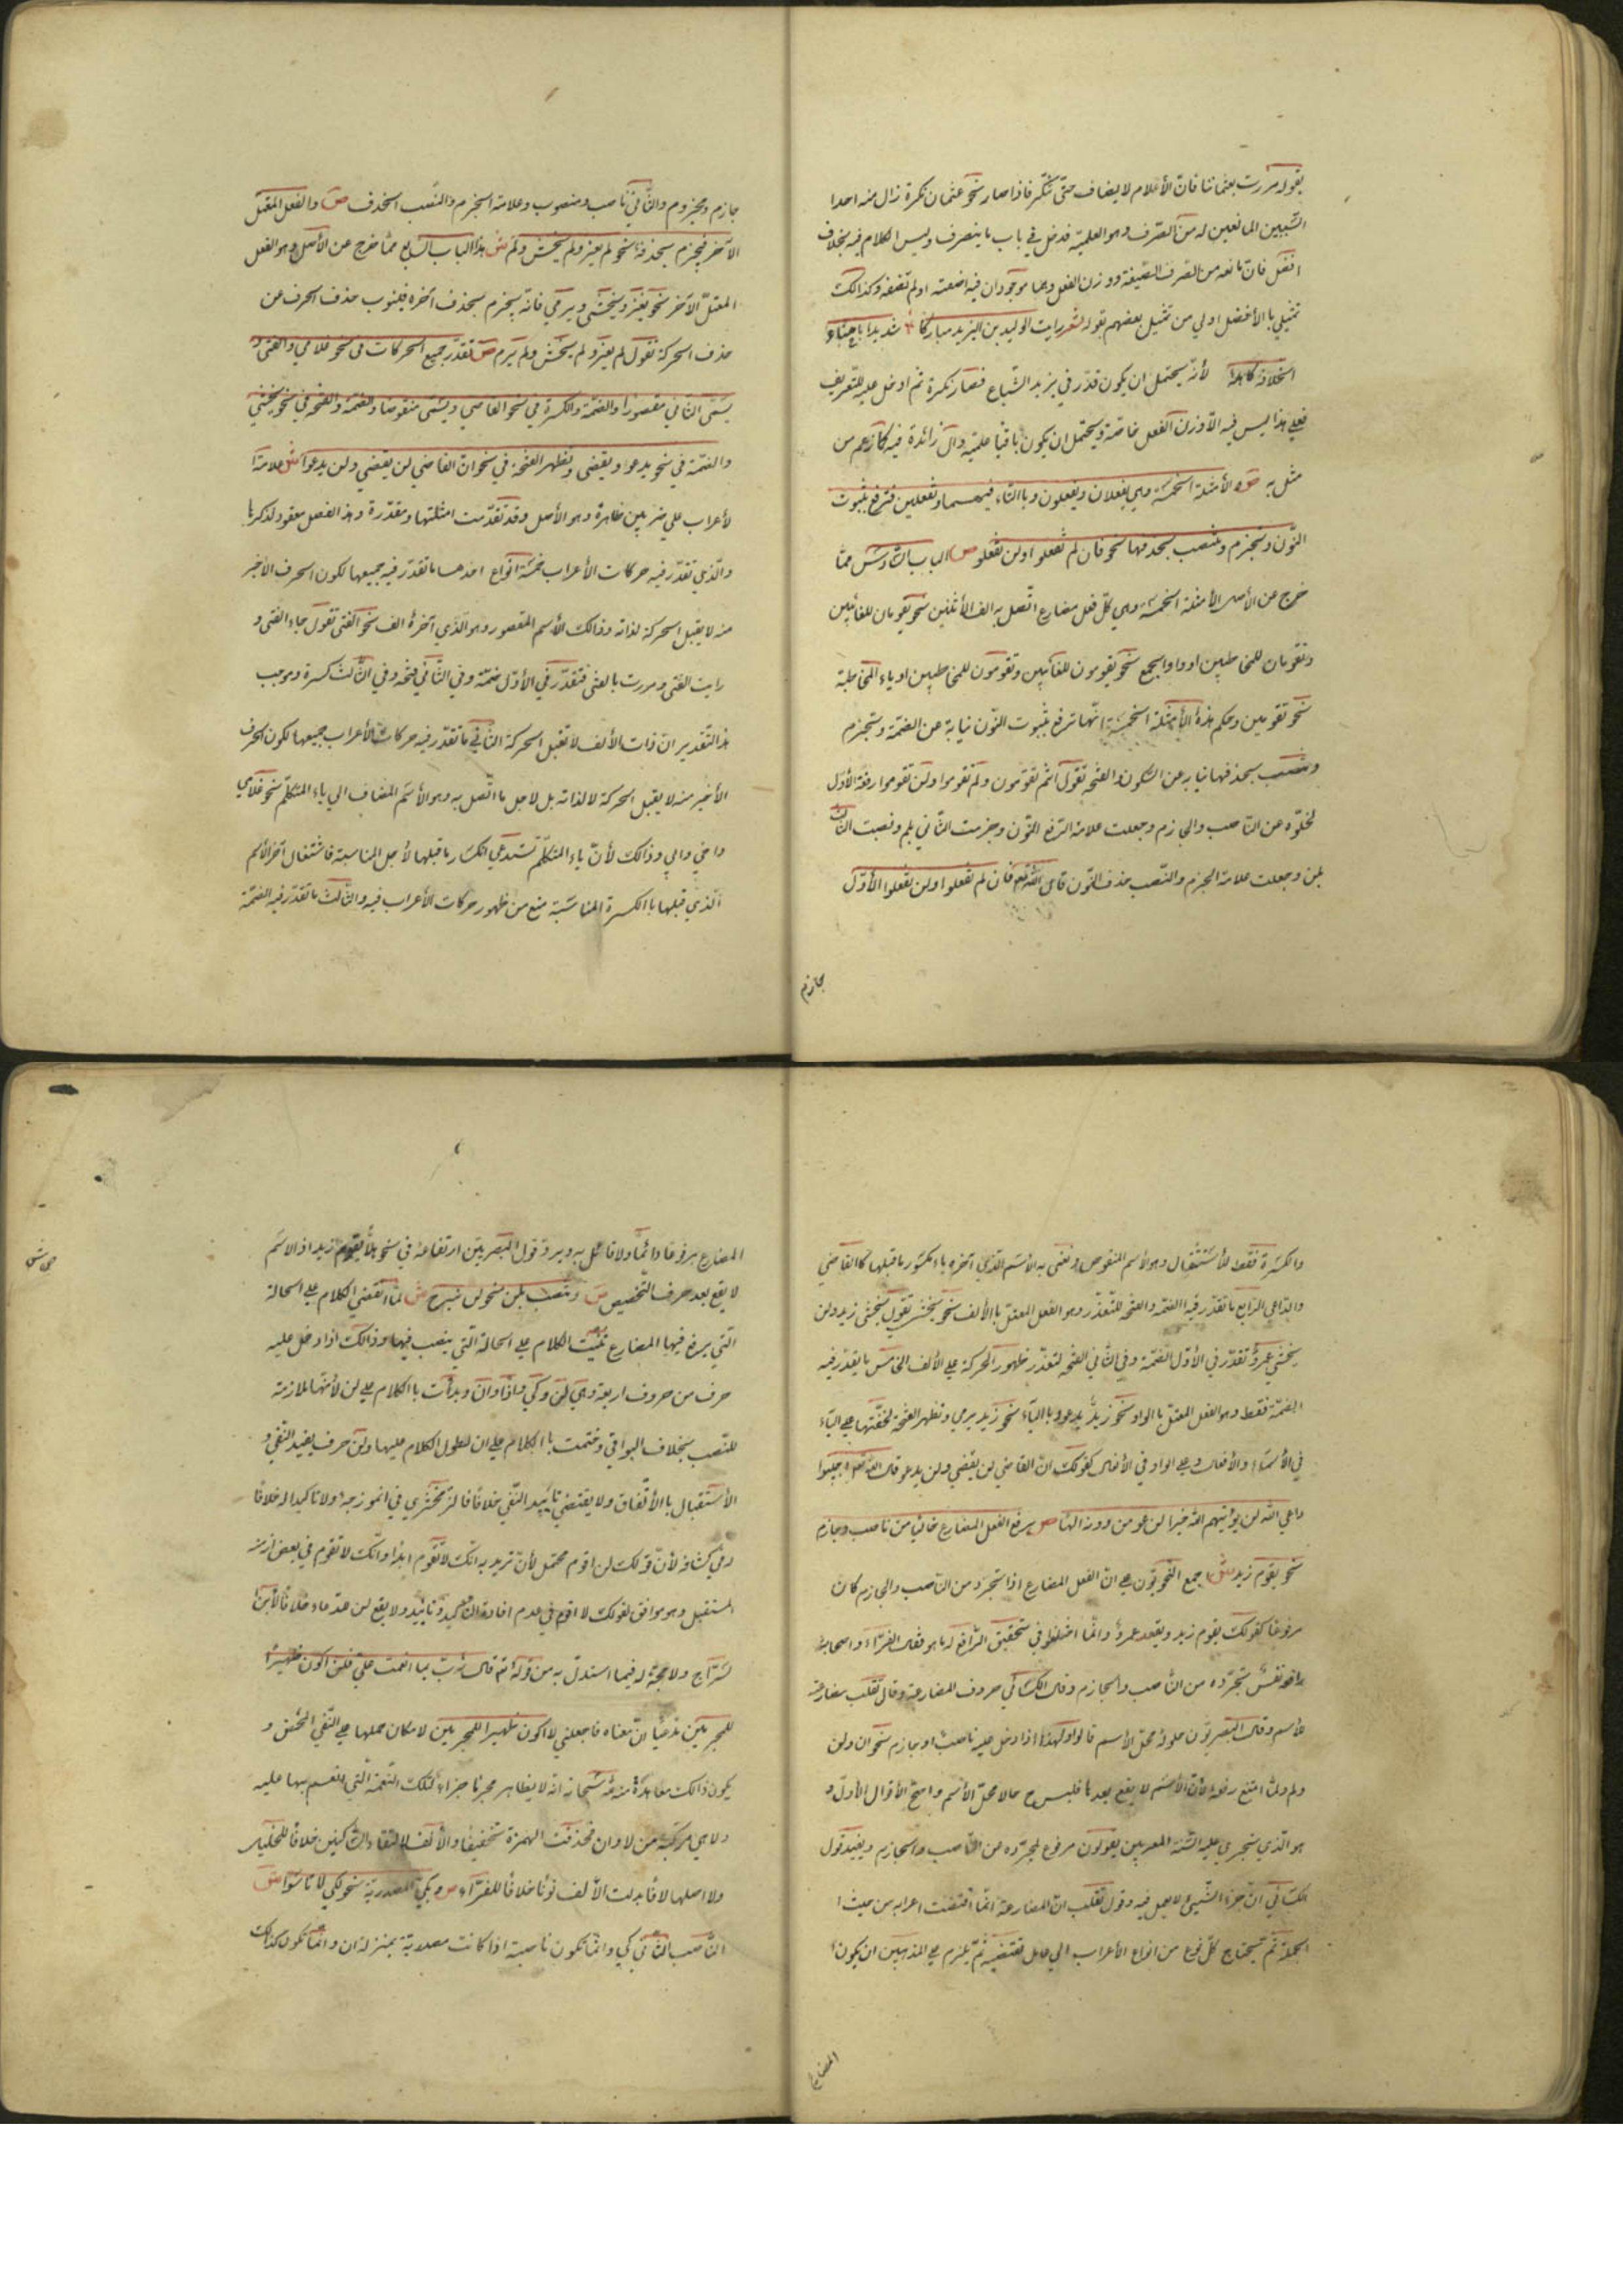 بقوله مررت بعثماننا فان الأعلام لا يضاف حتى تنكر فاذا صار نحو عثمان نكرة زال منه احدا
السببين المانعين له من الصرف وهو العلمية فدخل في باب ما ينصرف وليس الكلام فيه بخلاف
افضل فان مانعه من الصرف الصيغة ووزن الفعل وهما موجودان فيه اضفته او لم تضفه وكذالك
تمثيلي بالأفضل اولي من تمثيل بعضهم بقوله شعر رايت الوليد بن اليزيد مباركا شديدا باحناء
الخلافة كاهله لأنه يحتمل ان يكون قدر في يزيد الشياع فصار نكرة ثم ادخل عليه للتعريف
فعلي هذا ليس فيه الا وزن الفعل خاصة ويحتمل ان يكون باقيا علميته وال زائدة فيه كما زعم من
مثل به ص والأمثلة الخمسة وهي يفعلان ويفعلون وباالتاء فيهما وتفعلين فترفع بثبوت
النون وتنجزم وتنصب بحذفها نحو فان لم تفعلوا ولن تفعلو ص الباب السادس مما
خرج عن الأصل الأمثلة الخمسة وهي كل فعل مضارع اتصل به الف الأثنين نحو يقومان للغائبين
وتقومان للمخاطبين او واو الجمع نحو يقومون للغائبين وتقومون للمخاطبين او ياء المخاطبة
نحو تقومين وحكم هذه الأمثلة الخمسة انها ترفع بثبوت النون نيابة عن الضمة وتنجزم
وتنصب بحذفها نيابة عن السكون والفتحة تقول انتم تقومون ولم تقوموا ولن تقوموا رفعة الأول
لخلوه عن الناصب والجازم وجعلت علامة الرفع النون وجزمت الثاني بلم ونصبت الثالث
بلن وجعلت علامة الجزم والنصب حذف النون قال الله تعم فان لم تفعلوا ولن تفعلوا الأول
جازم
جازم ومجزوم والثاني ناصب ومنصوب وعلامة الجزم والنصب الحذف ص والفعل المعتل
الآخر فيجزم بحذفه نحو لم يغز ولم يخش ولم ش هذا الباب السابع مما خرج عن الأصل وهو الفعل
المعتل الآخر نحو يغزو ويخشى ويرمي فانه يجزم بحذف آخره فينوب حذف الحرف عن
حذف الحركة تقول لم يغز ولم يخش ولم يرم ص تقدر جميع الحركات في نحو غلامي والفتى و
يسمى الثاني مقصورا والضمة والكسرة في نحو القاضي ويسمى منقوصا والضمة والفتحة في نحو يخشي
والضمة في نحو يدعوا ويقضي وتظهر الفتحة في نحو ان القاضي لن يقضي ولن يدعوا ش علامة ا
لأعراب علي ضربين ظاهرة وهو الأصل وقد تقدمت امثلتها ومقدرة وهذا الفصل معقود لذكرها
والذي تقدر فيه حركات الأعراب خمسة انواع احدها ما تقدر فيه جميعها لكون الحرف الاخر
منه لا يقبل الحركة لذاته وذالك الأسم المقصور وهو الذي آخره الف نحو الفتى تقول جاء الفتى و
رايت الفتى ومررت بالفتى فتقدر في الأول ضمة وفي الثاني فتحة وفي الثالث كسرة وموجب
هذا التقدير ان ذات الألف لا تقبل الحركة الثاني ما تقدر فيه حركات الأعراب جميعها لكون الحرف
الأخير منه لا يقبل الحركة لا لذاته بل لاجل ما اتصل به وهو الأسم المضاف الي ياء المتكلم نحو غلامي
واخي وابي وذالك لأن ياء المتكلم تستدعي انكسار ما قبلها لأجل المناسبة فاشتغال آخر الأسم
الذي قبلها باالكسرة المناسبة منع من ظهور حركات الأعراب فيه والثالث ما تقدر فيه الضمة
والكسرة فقط للأستثقال وهو الأسم المنقوص ونعني به الأسم الذي آخره ياء مكسور ما قبلها كالقاضي
والداعي الرابع ما تقدر فيه الضمة والفتحة للتعذر وهو الفعل المعتل باالألف نحو يخشى تقول يخشى زيد ولن
يخشى عمرو تقدر في الأول الضمة وفي الثاني الفتحة لتعذر ظهور الحركة علي الألف الخامس ما يقدر فيه
الضمة فقط وهو الفعل المعتل باالواو نحو زيد يدعو وباالياء نحو زيد يرمي وتظهر الفتحة لخفتها علي الياء
في الأسماء والأفعال وعلي الواو في الأفعال كقولك ان القاضي لن يقضي ولن يدعو قال الله تعم اجيبوا
داعي الله لن يؤتيهم الله خيرا لن ندعو من دونه الها ص يرفع الفعل المضارع خاليا من ناصب وجازم
نحو يقوم زيد ش اجمع النحويون علي ان الفعل المضارع اذا تجرد من الناصب والجازم كان
مرفوعا كقولك يقوم زيد ويقعد عمرو وانما اختلفوا في تحقيق الرافع له ما هو فقال الفراء واصحابه
رافعه نفس تجرده من الناصب والجازم وقال الكسائي حروف المضارعة وقال ثعلب مضارعته
للأسم وقال البصريون حلوله محل الأسم قالوا ولهذا اذا دخل عليه ناصب او جازم نحو ان ولن
ولم ولما امتنع رفعه لأن الأسم لا يقع بعدها فليس ح حالا محل الأسم واصح الأقوال الأول و
هو الذي يجري علي السنة المعربين يقولون مرفوع لتجرده من الناصب والجازم ويفسد قول
الكسائي ان جزء الشيئ لا يعمل فيه وقول ثعلب ان المضارعة انما اقتضت اعرابه من حيث ا
لجملة ثم يحتاج كل نوع من انواع الأعراب الي عامل تقتضيه ثم يلزم علي المذهبين ان يكون
المضارع
المضارع مرفوعا دائما ولا قائل به ويرد قول البصريين ارتفاعه في نحو هلا يقوم زيد اذ الاسم
لا يقع بعد حرف التخصيص ص وينصب بلن نحو لن نبرح ش لما انقضى الكلام علي الحالة
التي يرفع فيها المضارع ثنيت الكلام علي الحالة التي ينصب فيها وذالك اذا دخل عليه
حرف من حروف اربعة وهي لن وكي واذا وان وبدأت باالكلام علي لن لأنها ملازمة
للنصب بخلاف البواقي وختمت باالكلام علي ان لطول الكلام عليها ولن حرف يفيد النفي و
الأستقبال باالأتفاق ولا يقتضي تأبيد النفي خلافا للزمخشري في انموزجه ولا تاكيدا له خلافا
له في كشافه لأن قولك لن اقوم محتمل لأن تريد به انك لا تقوم ابدا وانك لا تقوم في بعض ازمنة
المستقبل وهو موافق لقولك لا اقوم في عدم افادة التأكيد وتأبيد ولا يقع لن عند دعاء خلافا لأبن
لسراج ولا حجة له فيما استدل به من قوله تعم قال رب بما انعمت علي فلن اكون ظهيرا
للمجرمين مدعيا ان معناه فاجعلني لا اكون ظهيرا للمجرمين لامكان حملها علي النفي المحض و
يكون ذالك معاهدة منه لله سبحانه ان لا يظاهر مجرما جزاء لتلك النعمة التي انعم بها عليه
ولا هي مركبة من لا وان فحذفت الهمزة تخفيفا والألف لالتقاء الساكنين خلافا للخليل
ولا اصلها لا فابدلت الألف نونا خلافا للفراء ص وبكي المصدرية نحو لكي لا تأسوا ش
الناصب الثاني كي وانما تكون ناصبة اذا كانت مصدرية بمنزلة ان وانما تكون كذالك